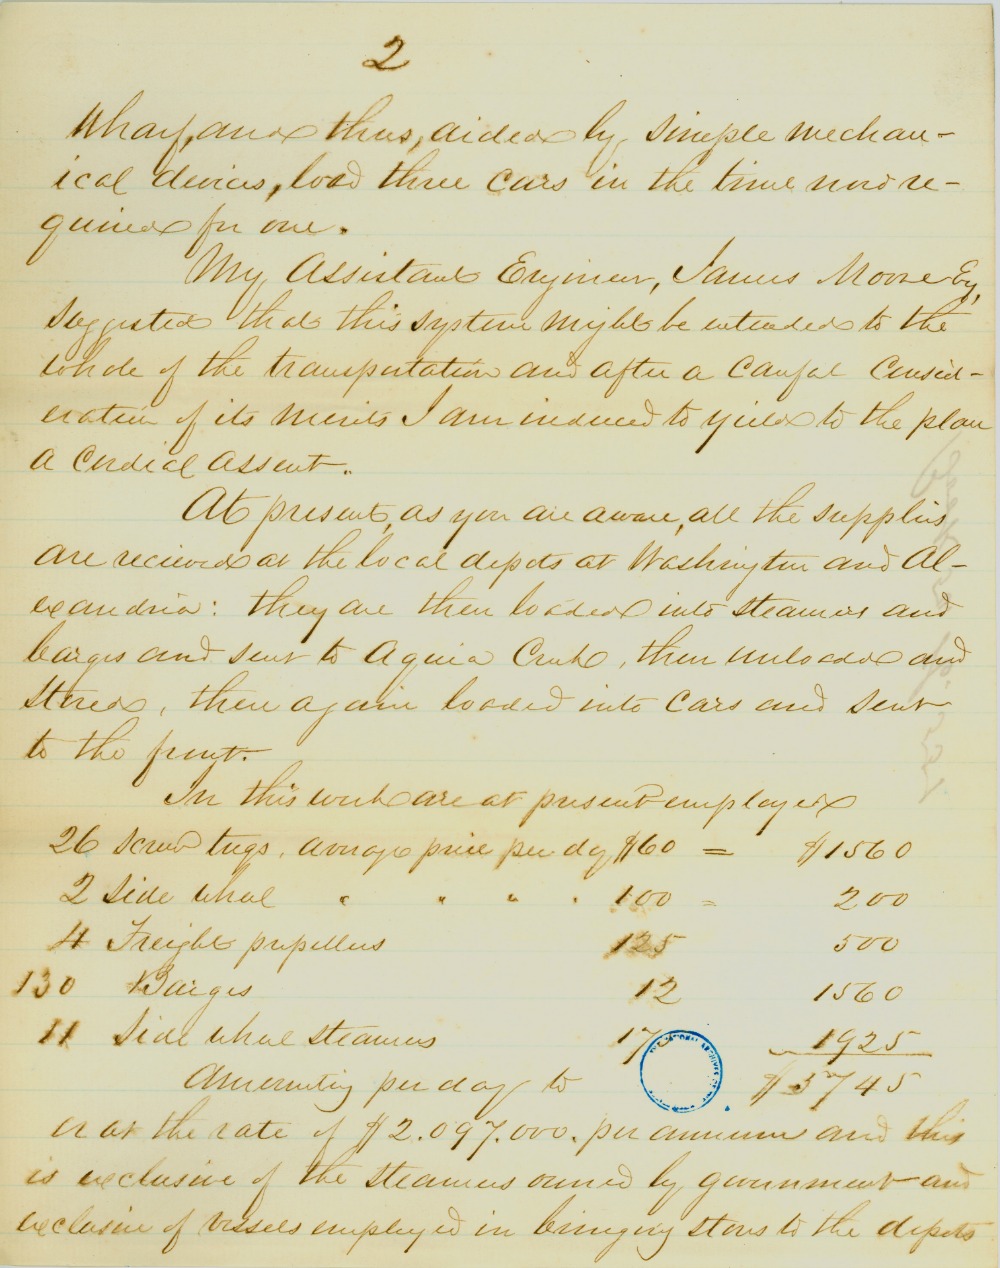 2
Wharf, and thus, aided by simple mechan-
ical devices, load three cars in the time now re-
quired for one.
My Assistant Engineer, James Moore Esq,
suggested that this system might be extended to the
whole of the transportation and after a careful consid-
eration of its merits I am induced to yield to the plan
a cordial assent.
At present, as you are aware, all the supplies
are received at the local depots at Washington and Al-
exandria: they are then loaded into steamers and
barges and sent to Aquia Creek, then unloaded and
stored, then again loaded into cars and sent
to the front.
In this work are at present employed
26 Screw tugs, average price per day $60 = $1560
2 Side wheel " " " " 100 = 200
4 Freight propellers 125 500
130 Barges 12 1560
11 Side wheel steamers 1925
Amounting per day to $5745
or at the rate of $2.097.000. per annum and this
is exclusive of the steamers owned by government and
exclusive of vessels employed in bringing stores to the depots